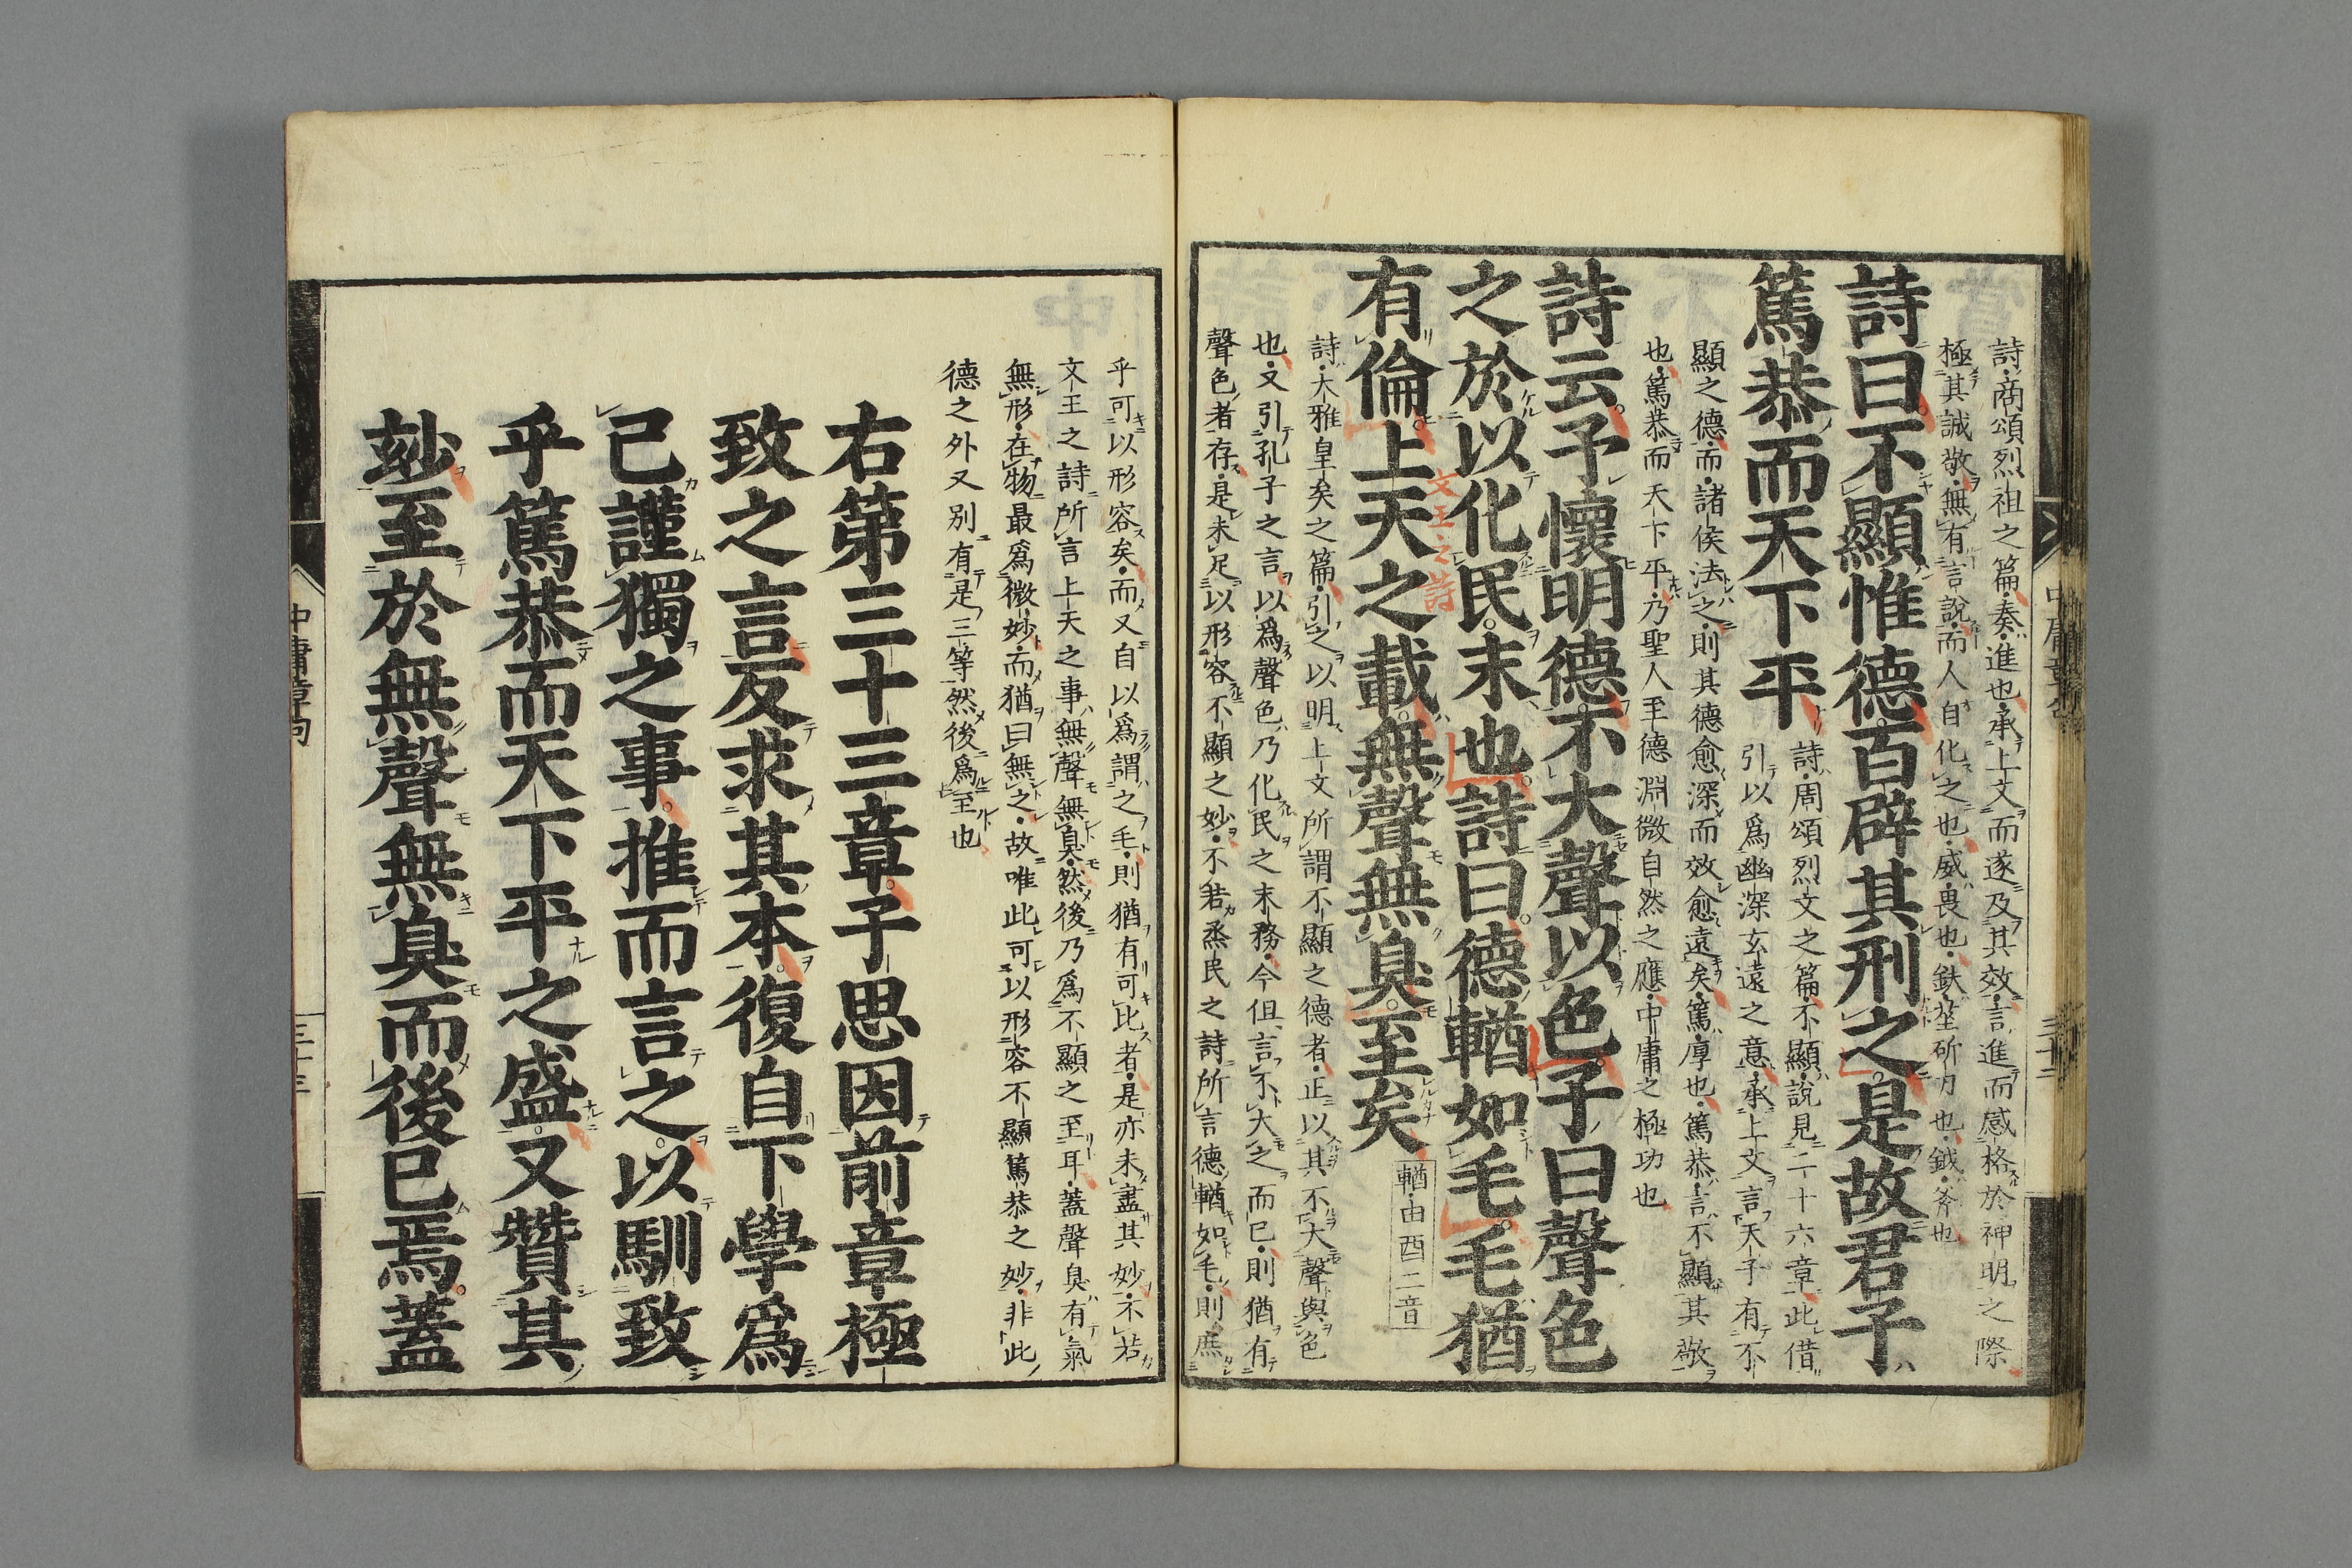 詩商頌烈祖之篇奏進也承上文而遂及其效言進而感格於神明之際
極其誠敬無有言說而人自化之也威畏也鈇莝斫刀也鉞斧也
詩曰不顯惟德百辟其刑之是故君子
篤恭而天下平
詩周頌烈文之篇不顯說見二十六章此借
引以爲幽深玄遠之意承上文言天子有不
顯之德而諸侯法之則其德愈深而效愈遠矣篤厚也篤恭言不顯其敬
也篤恭而天下平乃聖人至德淵微自然之應中庸之極功也
詩云予懷明德不大聲以色子曰聲色
之於以化民末也詩曰德輶如毛毛猶
有倫上天之載無聲無臭至矣
文王之詩
輶由酉二音
詩大雅皇矣之篇引之以明上文所謂不顯之德者正以其不大聲與色
也又引孔子之言以爲聲色乃化民之末務今但言不大之而已則猶有
聲色者存是未足以形容不顯之妙不若烝民之詩所言德輶如毛則庶
中庸章句
三十二
乎可以形容矣而又自以爲謂之毛則猶有可比者是亦未盡其妙不若
文王之詩所言上天之事無聲無臭然後乃爲不顯之至耳蓋聲臭有氣
無形在物最爲微妙而猶曰無之故唯此可以形容不顯篤恭之妙非此
德之外又別有是三等然後爲至也
右第三十三章子思因前章極
致之言反求其本復自下學爲
己謹獨之事推而言之以馴致
乎篤恭而天下平之盛又贊其
玅至於無聲無臭而後已焉蓋
中庸章句
三十三